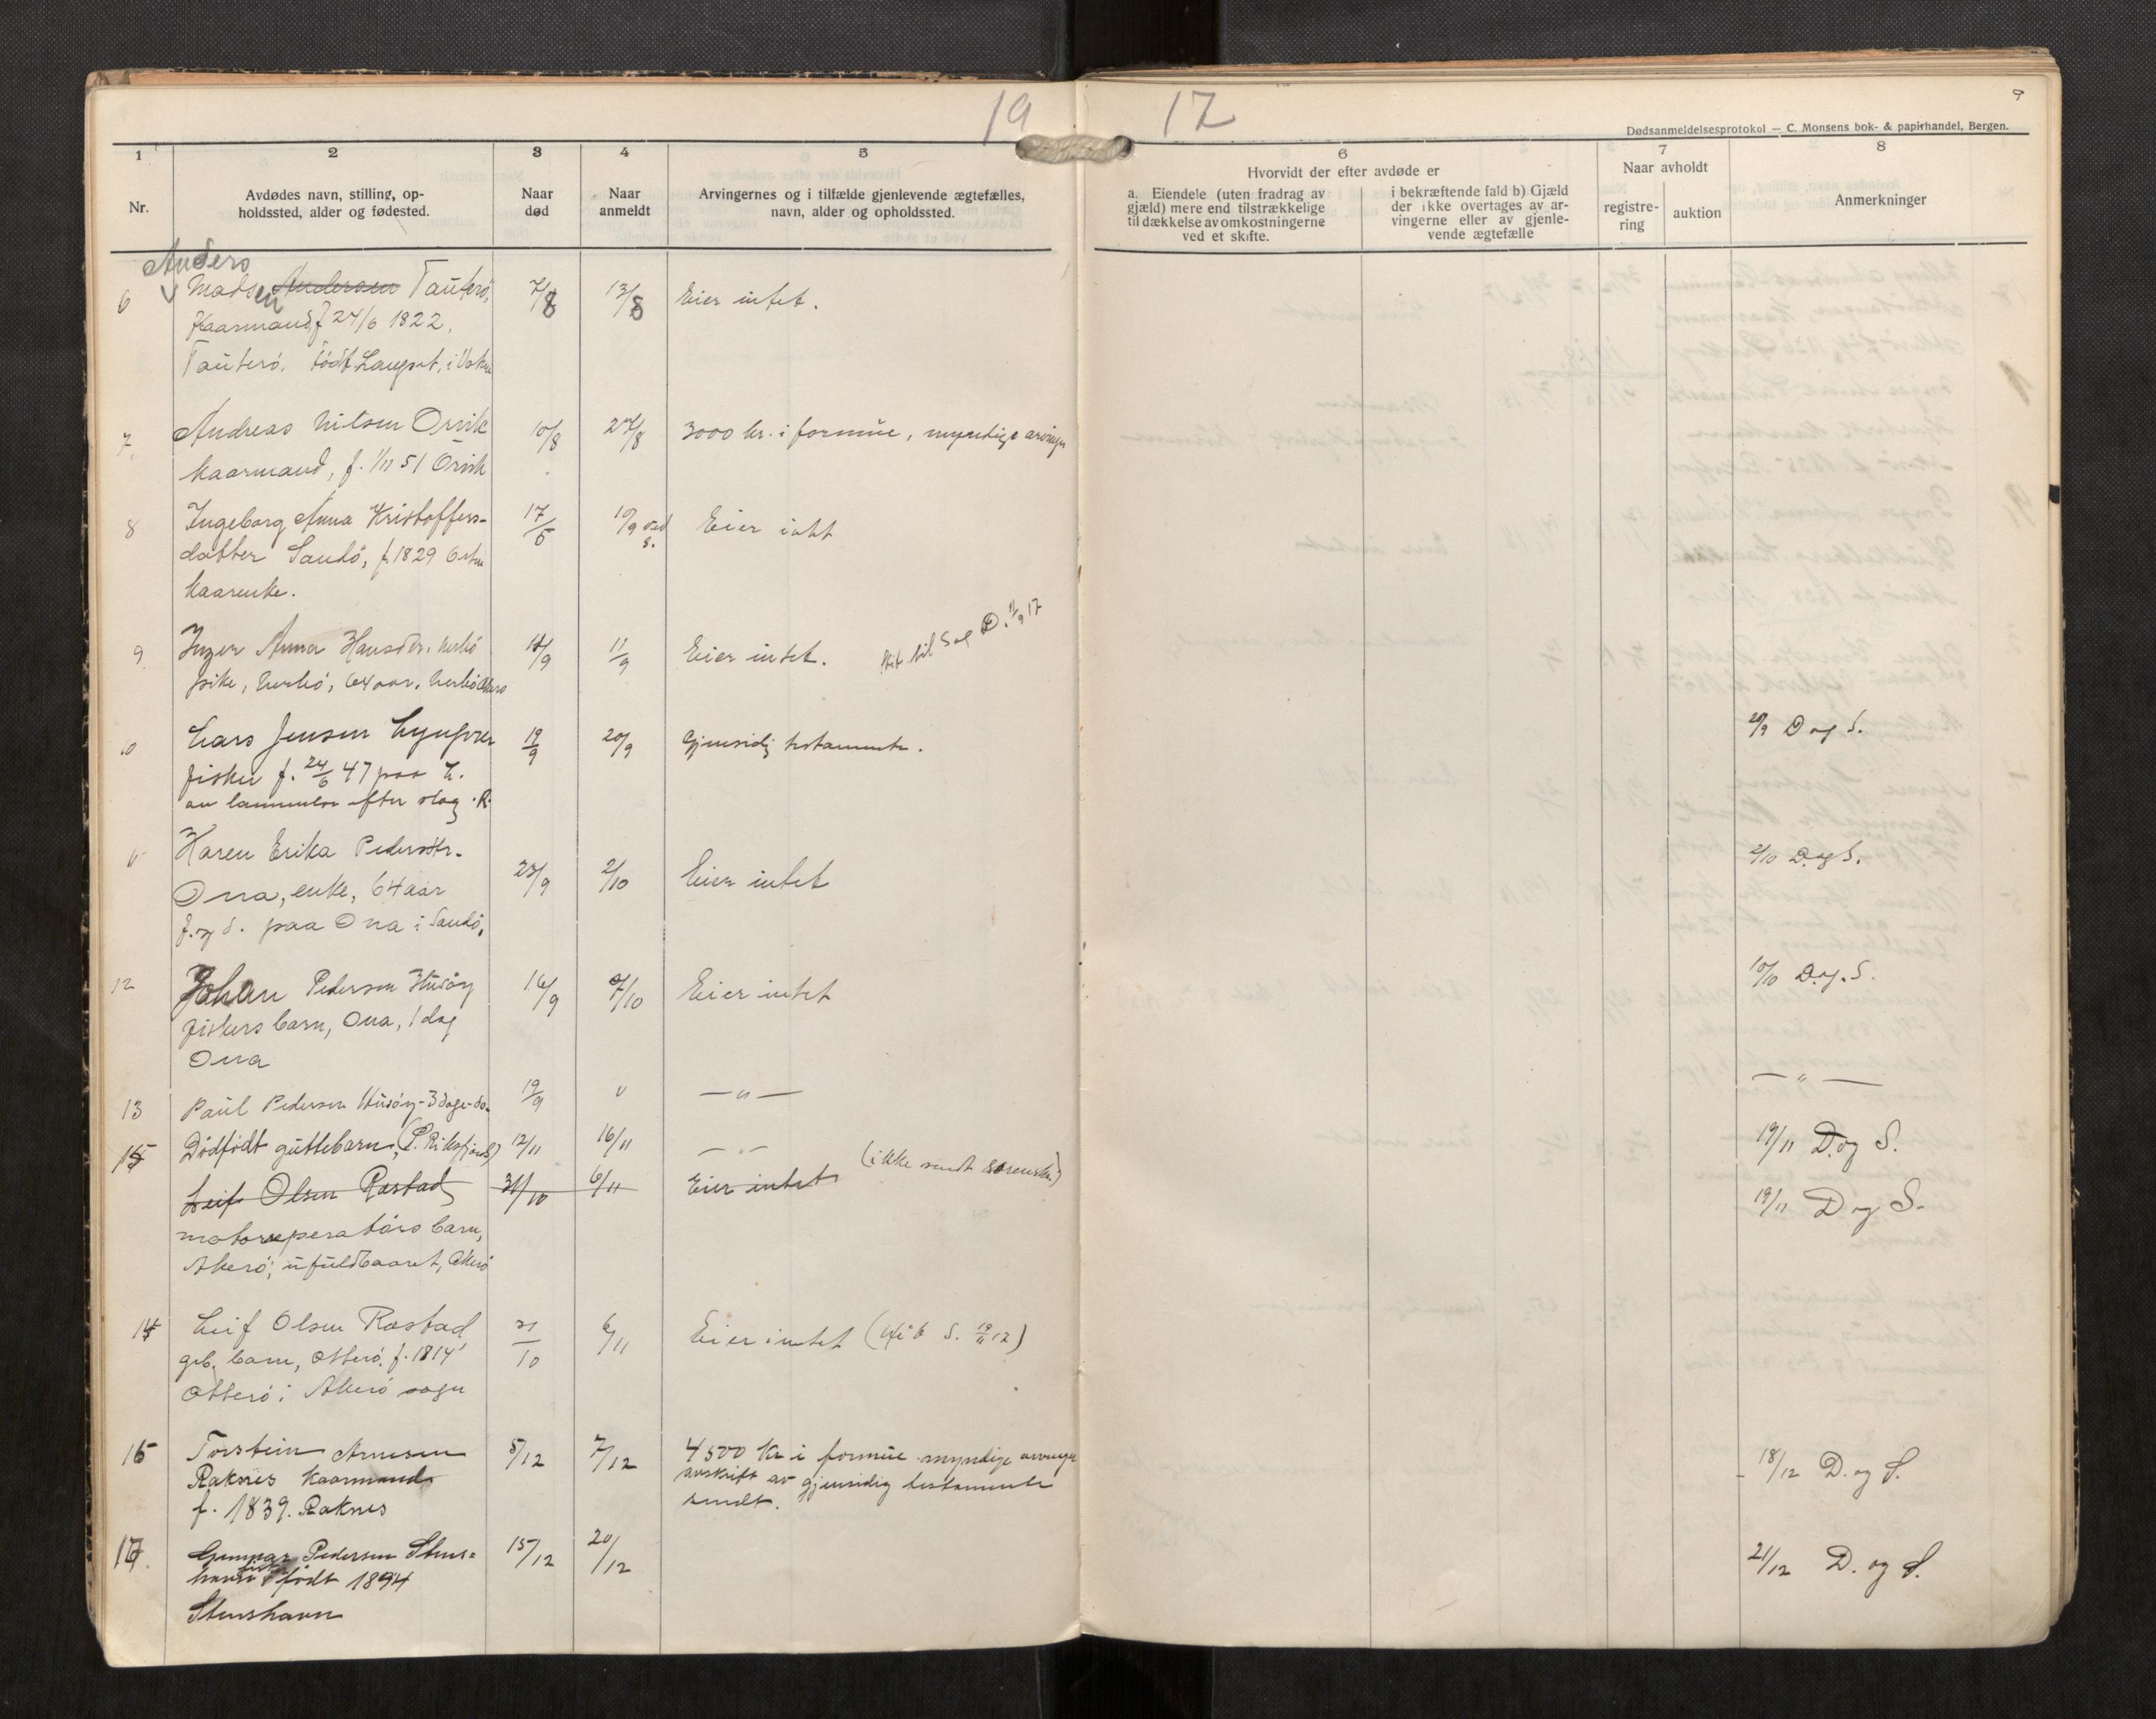 19 17
9
Dødsanmeldelsesprotokol — C. Monsens bok- & papirhandel, Bergen.
1 2 3 4 5 6 7 8
Nr.
Avdødes navn, stilling, op-
holdssted, alder og fødested.
Naar
død
Naar
anmeldt
Arvingernes og i tilfælde gjenlevende ægtefælles,
navn, alder og opholdssted.
Hvorvidt der efter avdøde er
a. Eiendele (uten fradrag av
gjæld) mere end tilstrækkelige
til dækkelse av omkostningerne
ved et skifte.
i bekræftende fald b) Gjæld
der ikke overtages av ar-
vingerne eller av gjenle-
vende ægtefælle
Naar avholdt
registre-
ring
auktion
Anmerkninger
Anders
6 Madsen Andersen Tauterö, 7/8 13/8 Eier intet.
Kaarmand, f 24/6 1822.
Tauterö. Född i
7 Andreas Nilsen Orvik 10/8 27/8 3000 kr. i formüe, myndige arvinger
kaarmand, f. 1/11 51 Orvik
8 Ingeborg Anna Kristoffers- 17/5 10/9 Eier intet
datter Sandö, f. 1829
kaarenke.
9 Inger Anna Hansdtr. 11/9 Eier intet. til 11/9 17
pike, 64 aar.
10 Lars Jensen 19/9 20/9 Gjensidig testamente. 20/9 D og S.
fisker f. 24/6 47 paa
av lammelse efter slag. R.
11 Karen Erika Pedersdtr. 2/10 D. og S.
Ona, enke, 64 aar 23/9 2/10 Eier intet
f. og d. paa Ona i Sandö.
12 Johan Pedersen Husöy 16/9 7/10 Eier intet 10/10 D. og. S.
fiskers barn, Ona, 1 dag
Ona
13 Paul Pedersen Husöy - 3 dage - do. 19/9 " — " — — " —
15 Dödfödt guttebarn, 12/11 16/11 — " — 19/11 D. og S.
Leif Olsen Rastad 31/10 6/11 Eier intet (ikke sendt sorenskr) 19/11 D og S.
motoroperatörs barn,
Akerö, ufuldbaaret, Akerö
14 Leif Olsen Rastad 31/10 6/11 Eier intet
barn, Otterö, f. 1814
Otterö i Akerö sogn
16 Torstein Arnesen 5/12 7/12 4500 Kr i formüe. myndige arvinger 18/12 D. og S.
Raknes Kaarmand avskrift av gjensidig testamente
f. 1839. Raknes sendt.
17. Gunnar Pedersen Stens= 15/12 20/12 21/12 D. og S.
havn födt 1894
Stenshavn